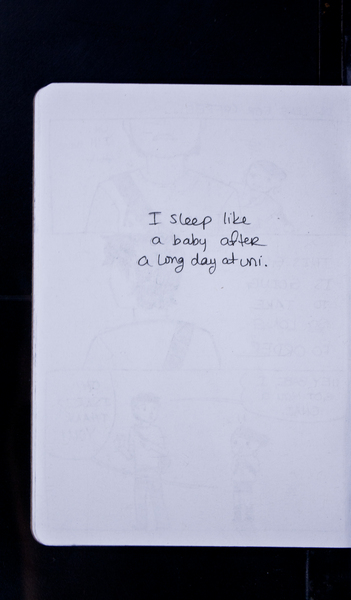 I sleep like
a baby after
a long day at uni.